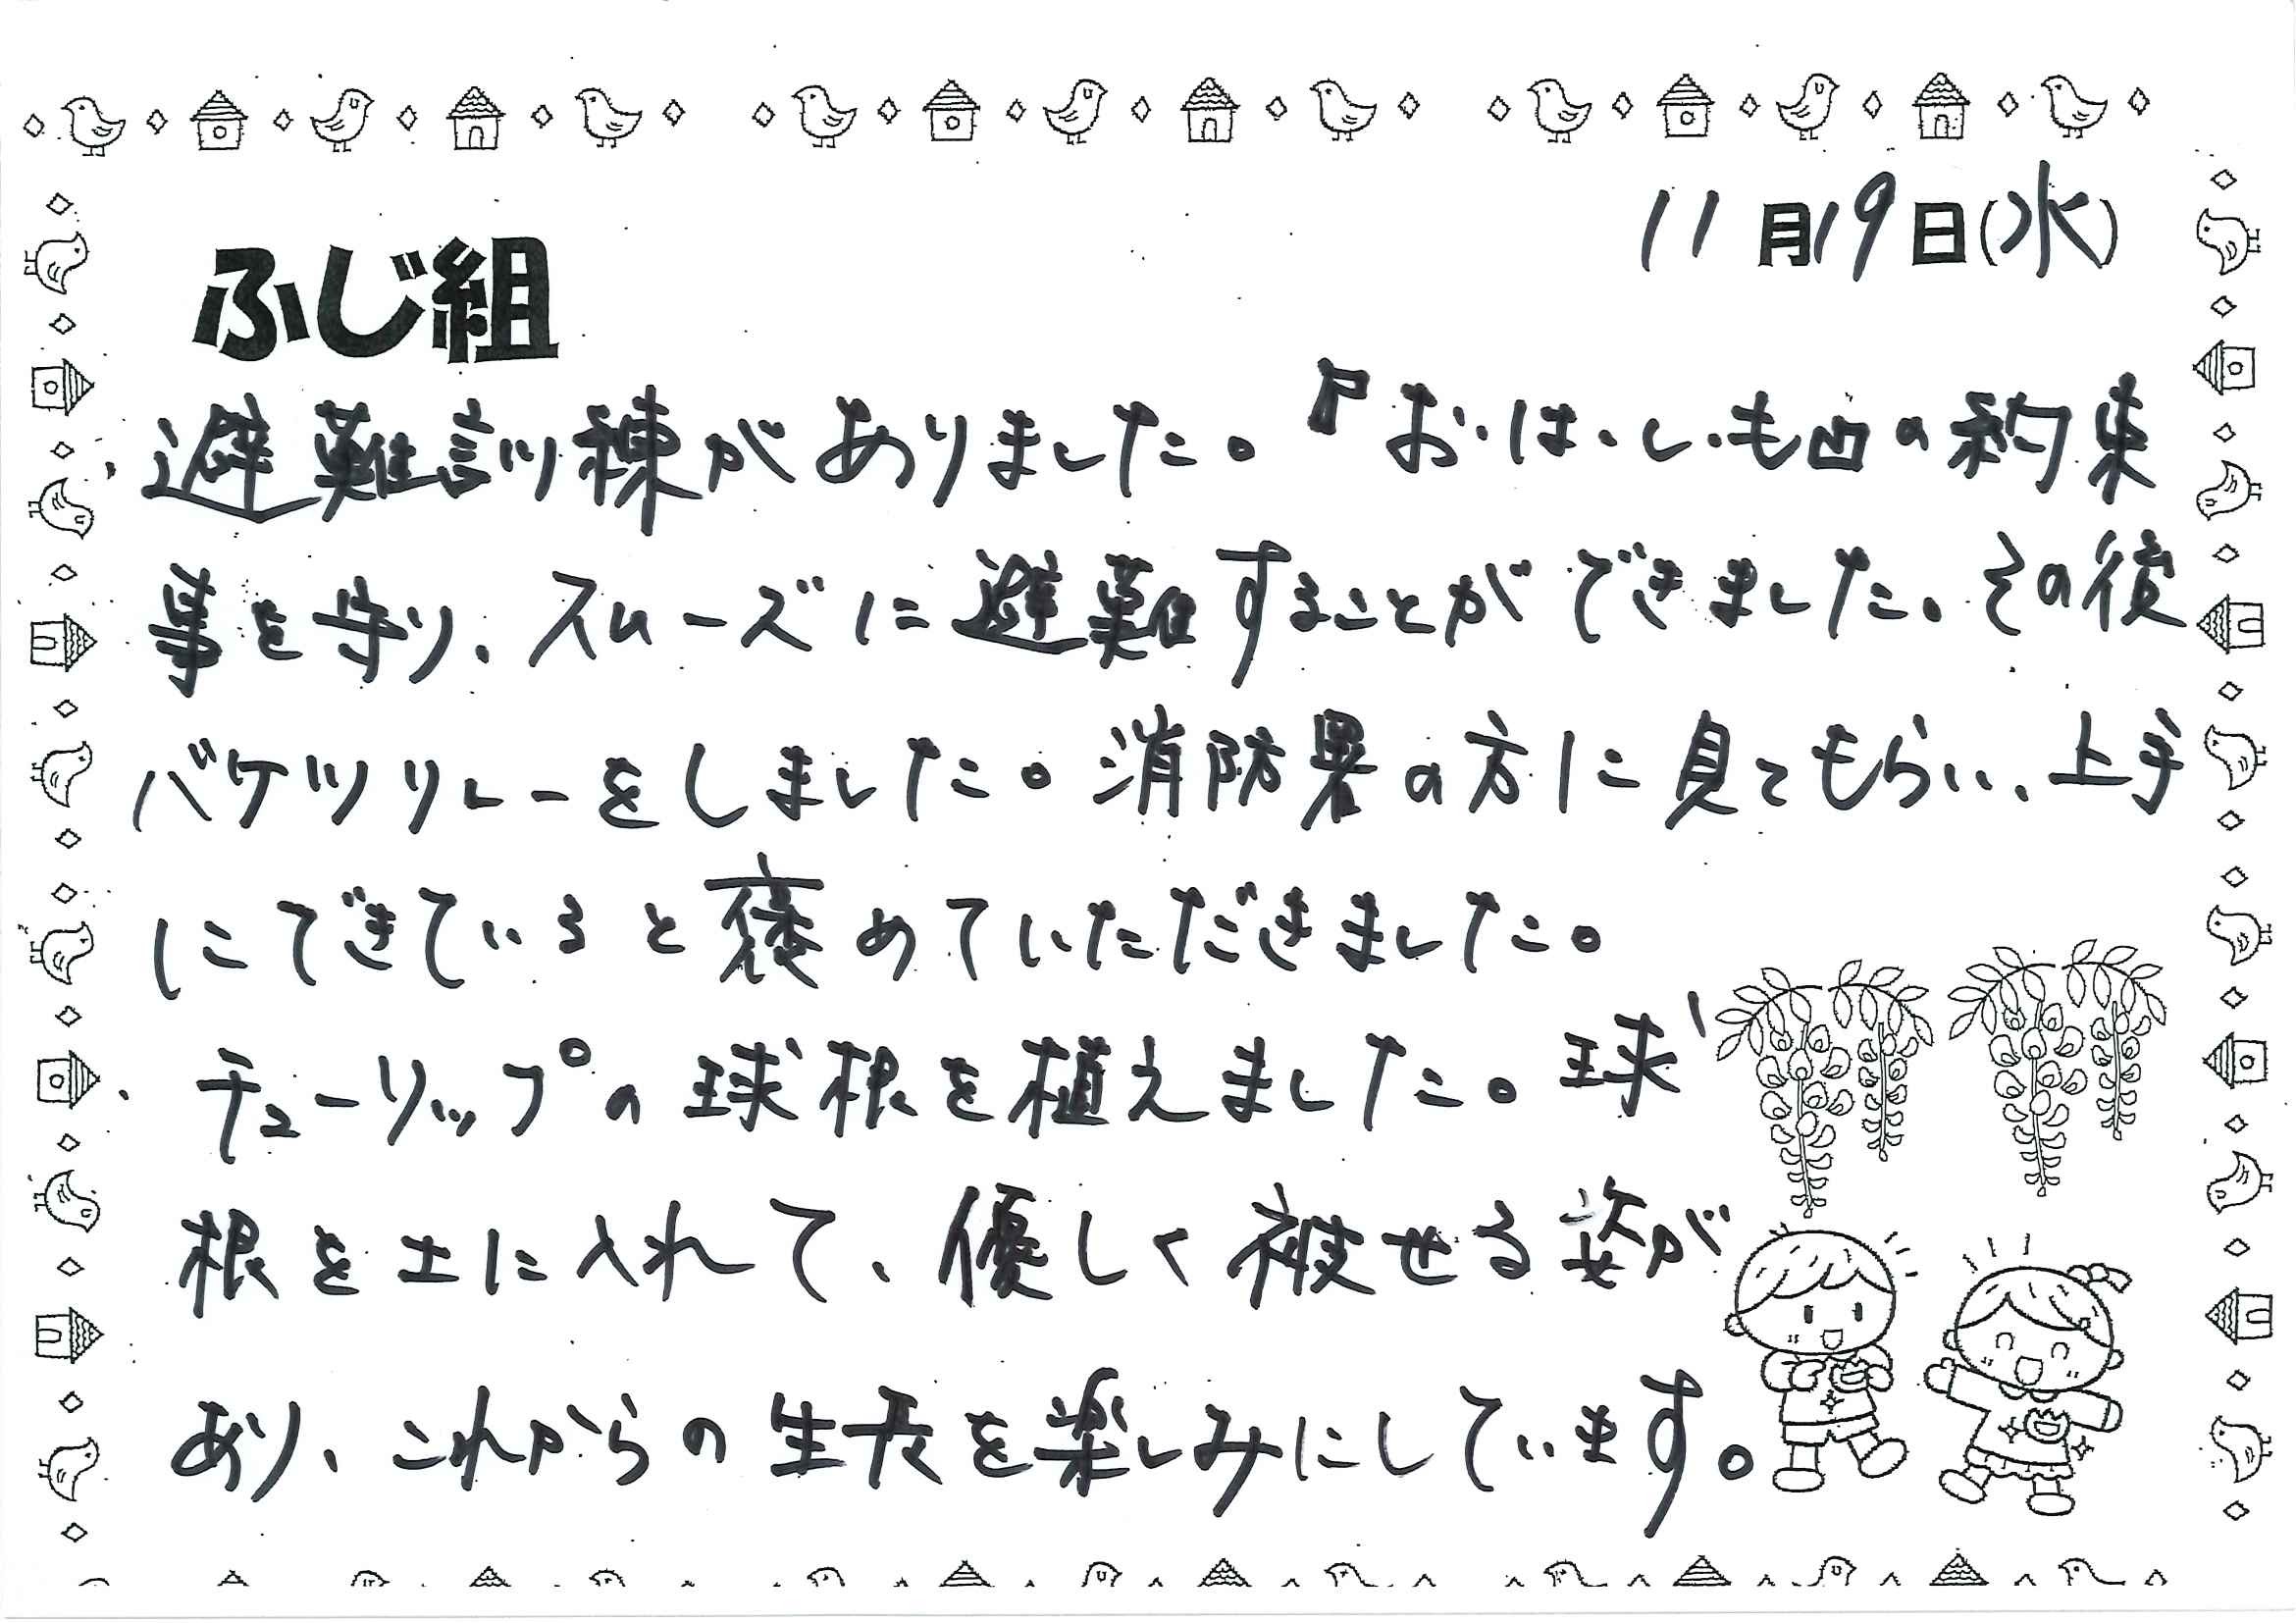 11月19日(水)
ふじ組
・避難訓練がありました。『お・は・し・も』の約束
事を守り、スムーズに避難することができました。その後
バケツリレーをしました。消防署の方に見てもらい、上手
にできていると褒めていただきました。
・チューリップの球根を植えました。球
根を土に入れて、優しく被せる姿が
あり、これからの生長を楽しみにしています。